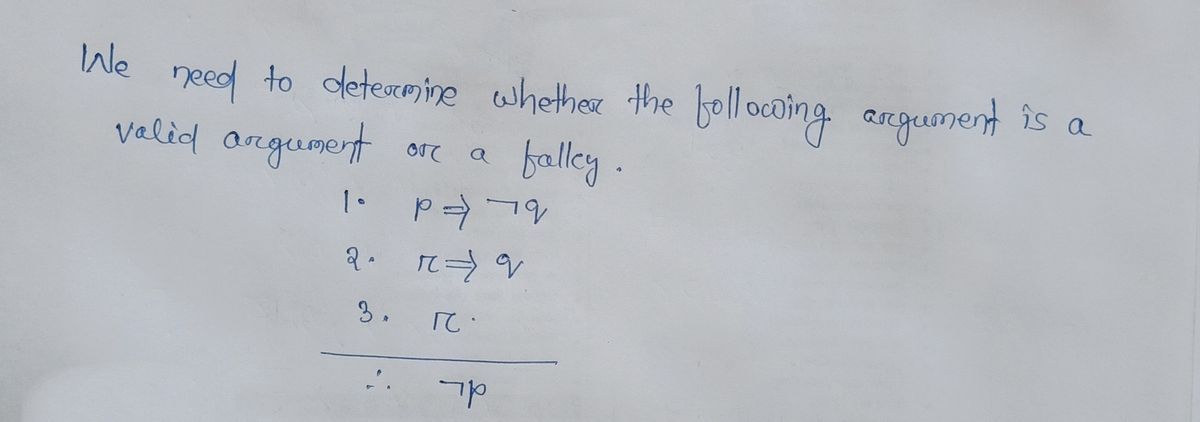 We need to determine whether the following argument is a
valid argument or a falley.
1. p ⇒ ¬q
2. r ⇒ q
3. r.
∴ ¬p